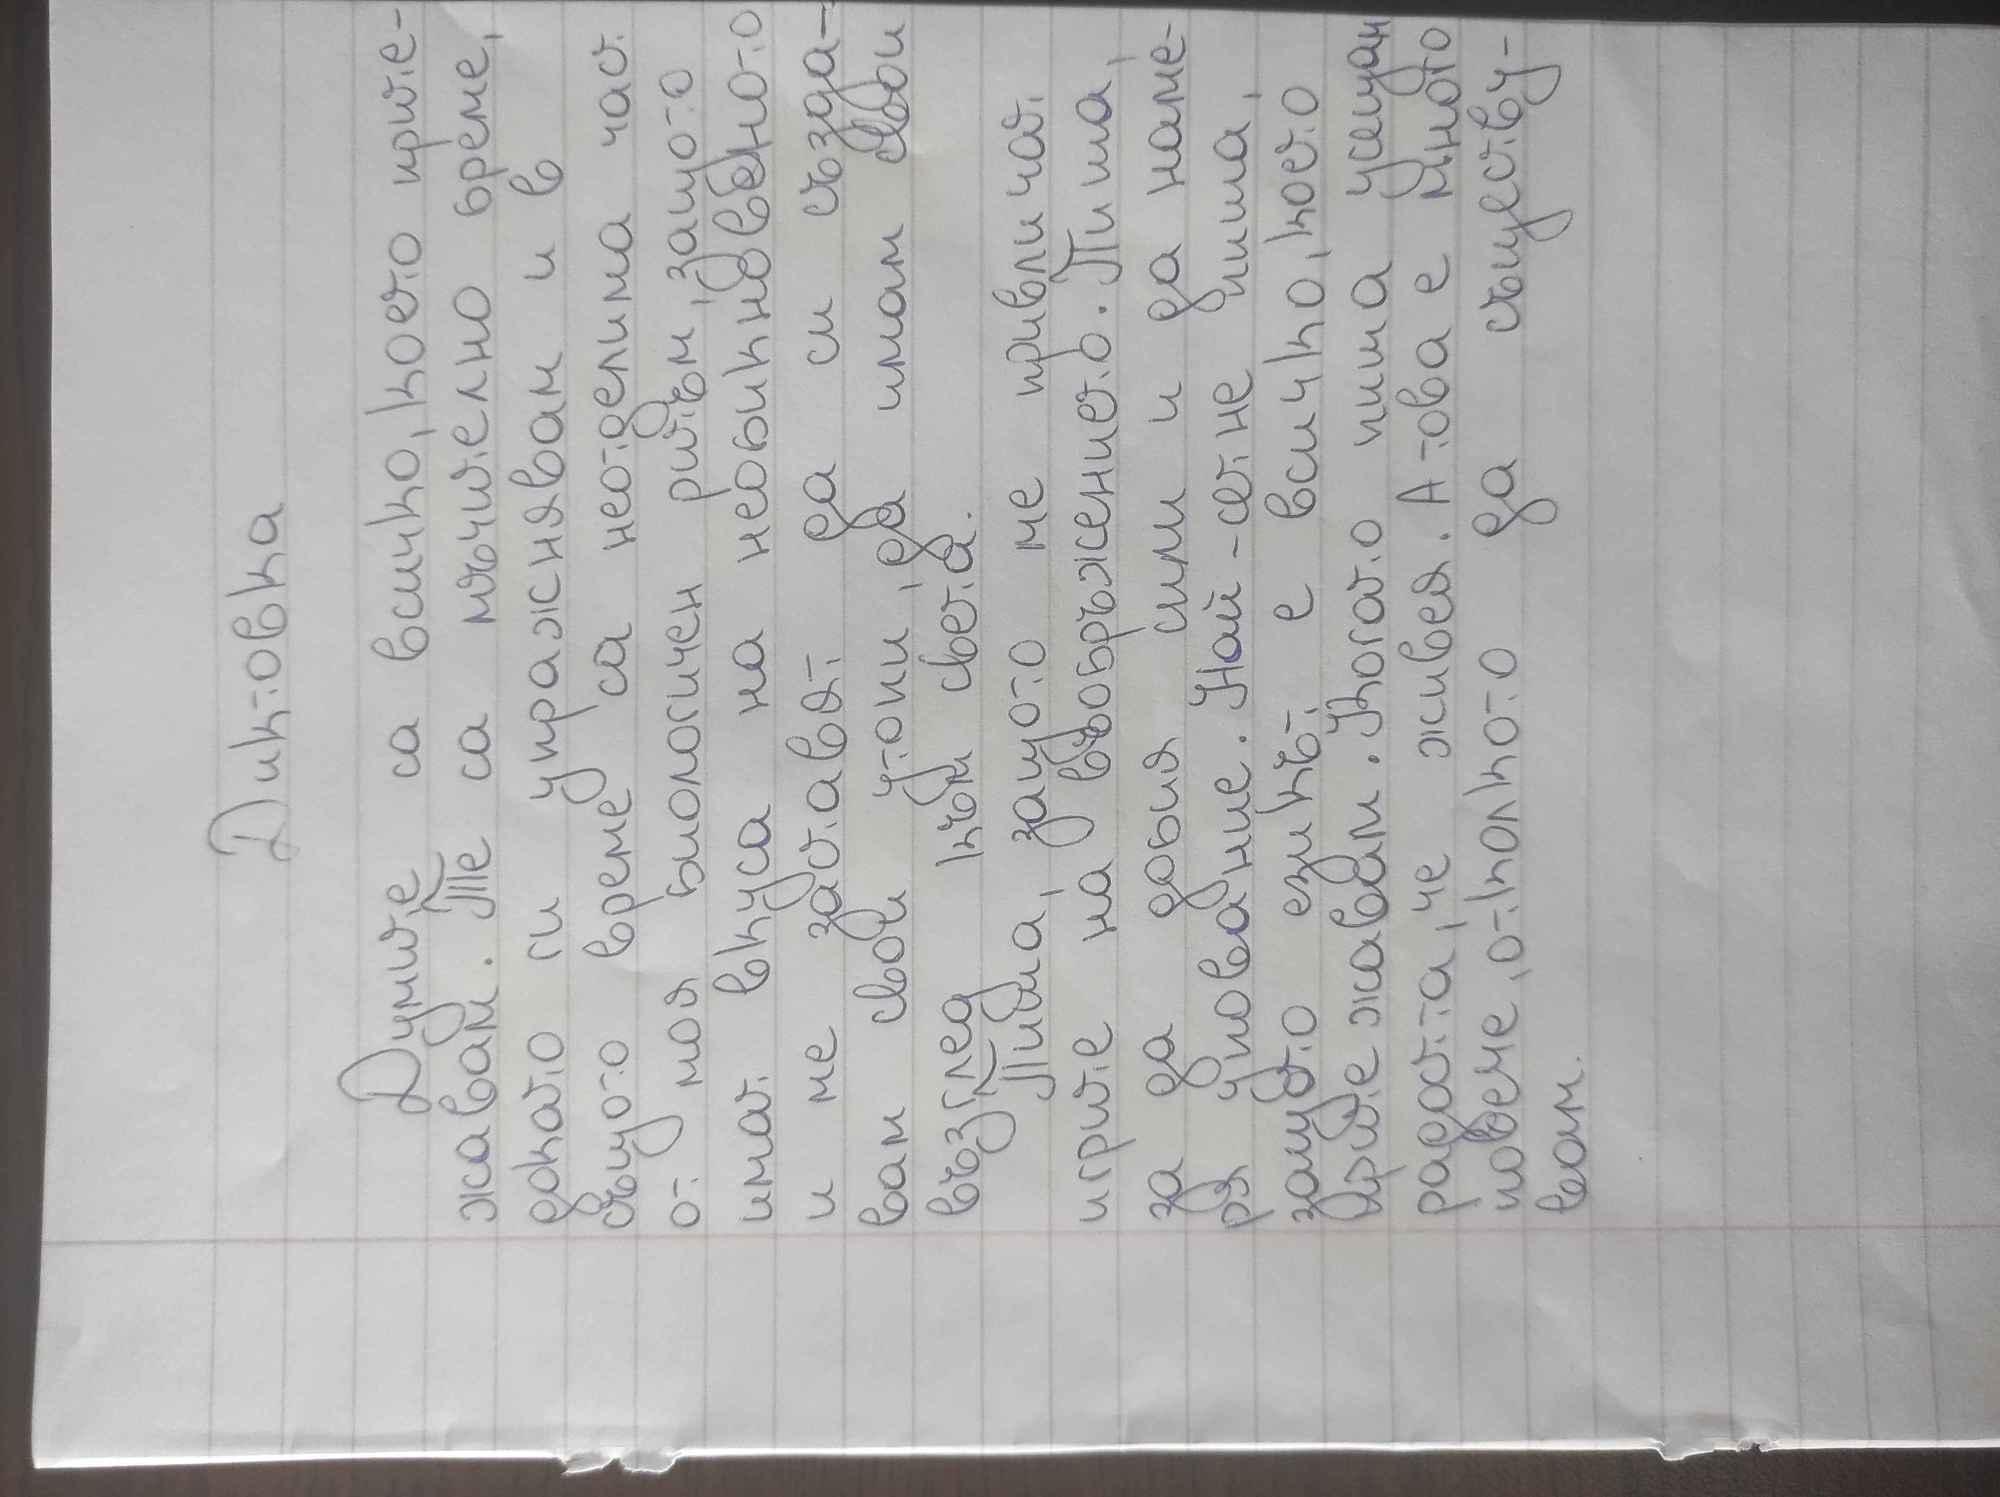 Диктовка
Думите са всичко, което прите-
жавам. Те са мъчително бреме,
докато ги упражнявам и в
същото време са неделима част
от моя биологичен ритъм, защото
имат вкуса на необикновеното
и ме заставят да си създа-
вам свои утопии, да имам свои
възглед към света.
Пиша, защото ме привличат
игрите на въображението. Пиша,
за да добия сили и да наме-
ря упование. Най-сетне пиша,
защото езикът е всичко, което
притежавам. Когато пиша усещам
радостта, че живея. А това е много
повече, отколкото да съществу-
вам.